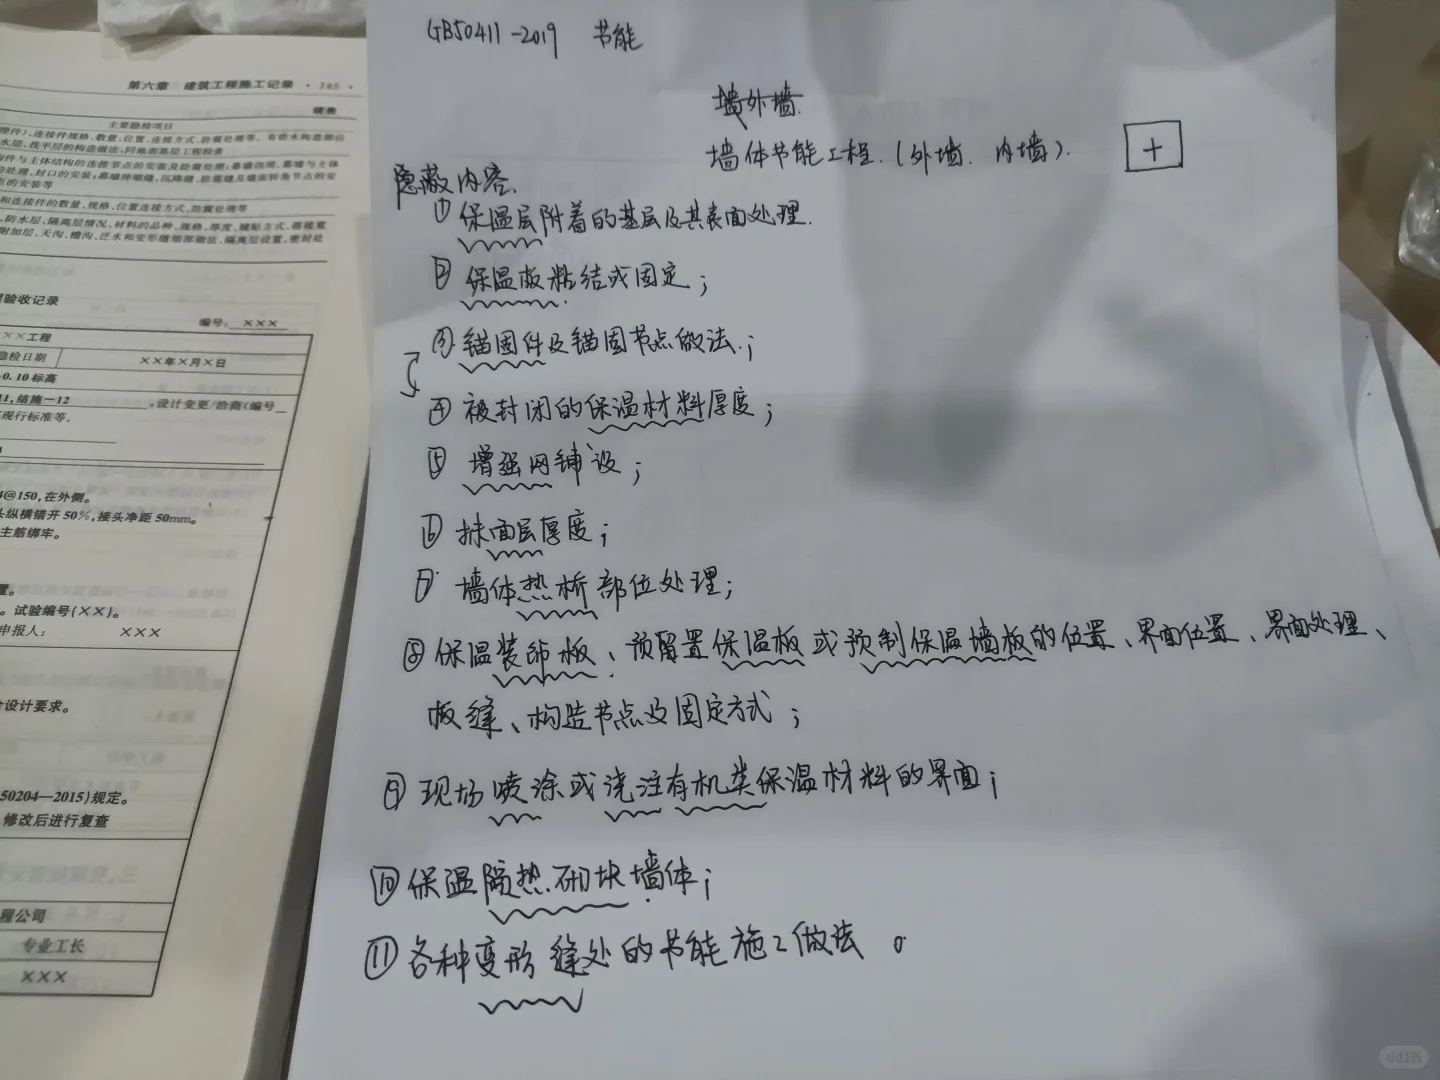 第六章 建筑工程施工记录 · 345 ·
续表
主要隐检项目
埋件)、连接件规格、数量、位置、连接方式、防腐处理等。有防水构造部位
水层、找平层的构造做法,同地面基层工程检查
构件与主体结构的连接节点的安装及防腐处理;幕墙四周、幕墙与主体
的处理、封口的安装;幕墙伸缩缝、沉降缝、防震缝及墙面转角节点的安
点的安装等
和连接件的数量、规格、位置连接方式、防腐处理等
、防水层、隔离层情况、材料的品种、规格、厚度、铺贴方式、搭接宽
附加层、天沟、檐沟、泛水和变形缝细部做法、隔离层设置、密封处
验收记录
编号: ×××
××工程
隐检日期 ××年×月×日
0.10标高
11,结施—12 ,设计变更/洽商(编号
现行标准等。
@150,在外侧。
头纵横错开50%,接头净距50mm。
主筋绑牢。
置。
。试验编号(××)。
申报人: ×××
设计要求。
50204—2015)规定。
修改后进行复查
程公司
专业工长
×××
GB50411-2019 节能
墙外墙.
墙体节能工程.(外墙.内墙).
+
隐蔽内容.
① 保温层附着的基层及其表面处理.
② 保温板粘结或固定;
③ 锚固件及锚固节点做法.;
④ 被封闭的保温材料厚度;
⑤ 增强网铺设;
⑥ 抹面层厚度;
⑦ 墙体热桥部位处理;
⑧ 保温装饰板、预留置保温板或预制保温墙板的位置、界面位置、界面处理、
板缝、构造节点及固定方式;
⑨ 现场喷涂或浇注有机类保温材料的界面;
⑩ 保温隔热砌块墙体;
⑪ 各种变形缝处的节能施工做法。
小红书